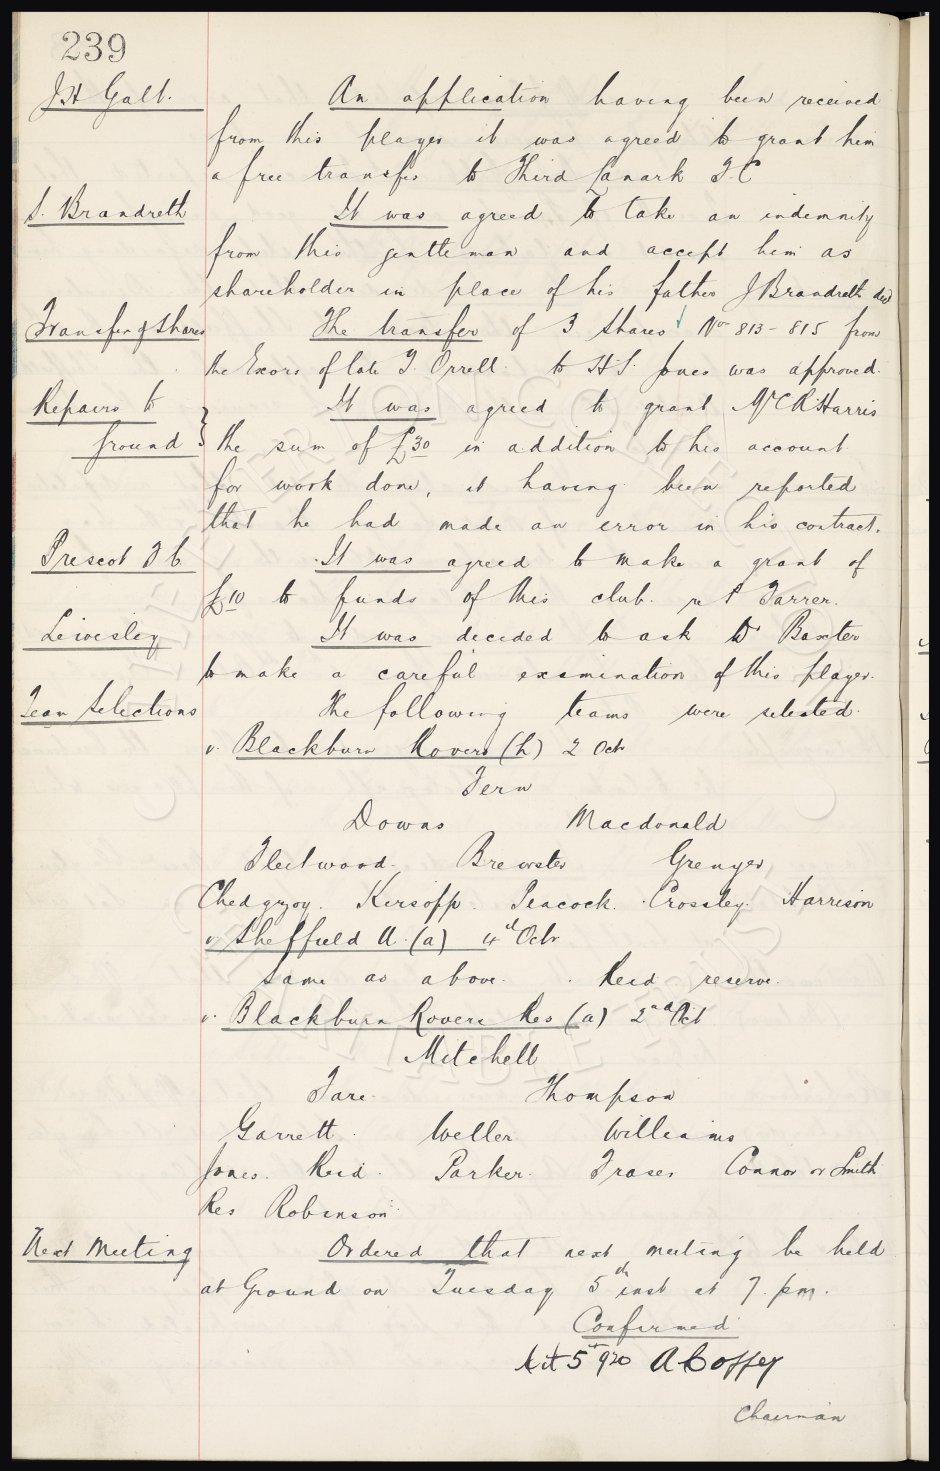 239
J H Galt.
An application having been received
from this player it was agreed to grant him
a free transfer to Third Lanark F.C
S. Brandreth
It was agreed to take an indemnity
from this gentleman and accept him as
shareholder in place of his father J Brandreth decd
Transfer of Shares
The transfer of 3 shares Nos 813 - 815 from
the Exors of late T. Orrell to H S. Jones was approved.
Repairs to
ground }
It was agreed to grant Mr C R Harris
the sum of £30 in addition to his account
for work done, it having been reported
that he had made an error in his contract.
Prescot F C
It was agreed to make a grant of
£10 to funds of this club. Farrer.
Lewesley
It was decided to ask Dr Baxter
to make a careful examination of this player.
Team Selections
The following teams were selected.
v. Blackburn Rovers (h) 2 Oct
Fern
Downs Macdonald
Fleetwood. Brewster Grenyer
Chedgzoy. Kirsopp. Peacock. Crossley. Harrison
v. Sheffield U. (a) 4th Octr
Same as above. Reid reserve.
v. Blackburn Rovers Res (a) 2nd Oct
Mitchell
Fare. Thompson
Garrett. Weller. Williams
Jones. Reid. Parker. Fraser Connor or Smith
Res Robinson
Next Meeting
Ordered that next meeting be held
at Ground on Tuesday 5th inst at 7. pm.
Confirmed
Oct 5th 920 A Coffey
Chairman